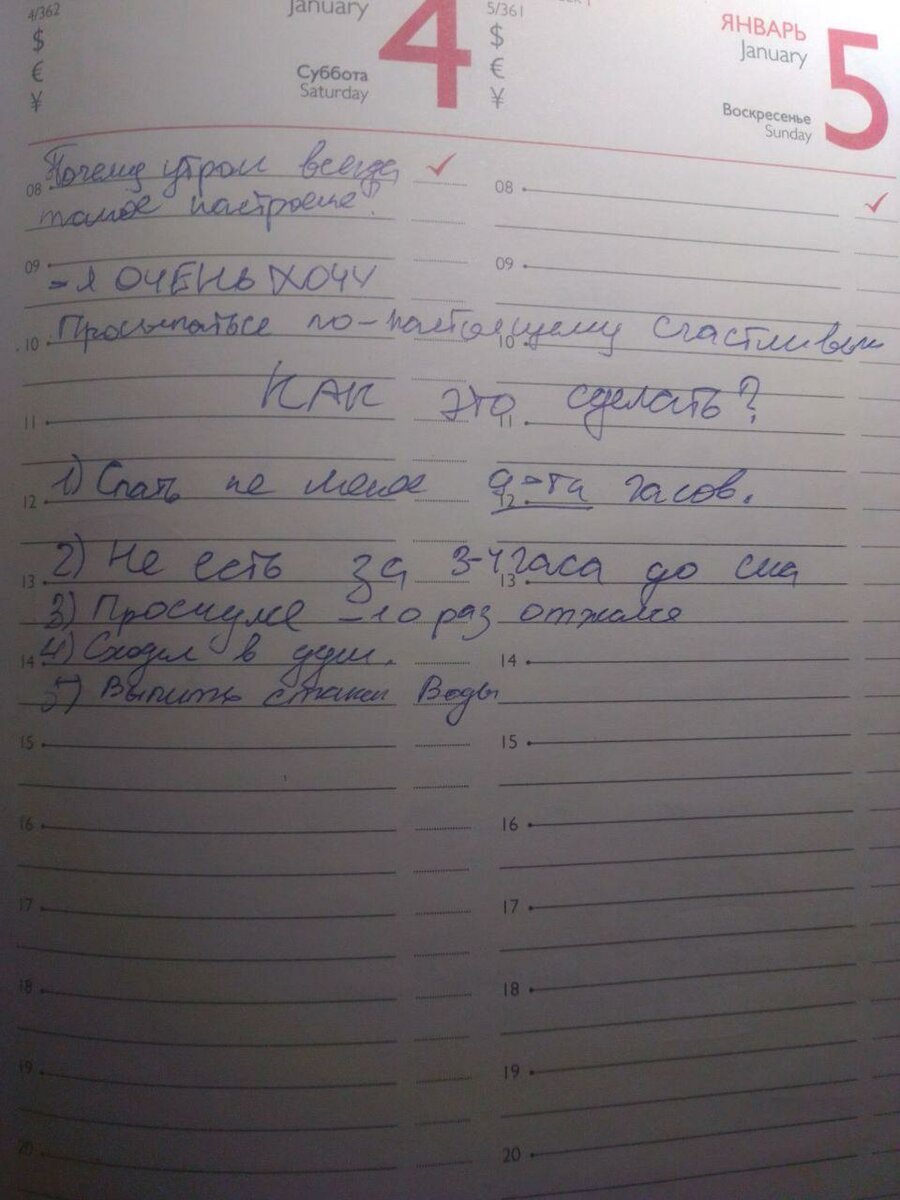 4/362
$
€
¥
January
4
Суббота
Saturday
5/361
$
€
¥
ЯНВАРЬ
January
5
Воскресенье
Sunday
08 Почему утром всегда
такое настроение?
09
- Я ОЧЕНЬ ХОЧУ
10 Просыпаться по-настоящему счастливым
КАК это сделать?
11
1) Спать не менее 9-ти часов.
12
2) Не есть за 3-4 часа до сна
13
3) Проснулся - 10 раз отжался
4) Сходил в душ.
14
5) Выпить стакан Воды
15
16
17
18
19
20
08
09
10
11
12
13
14
15
16
17
18
19
20